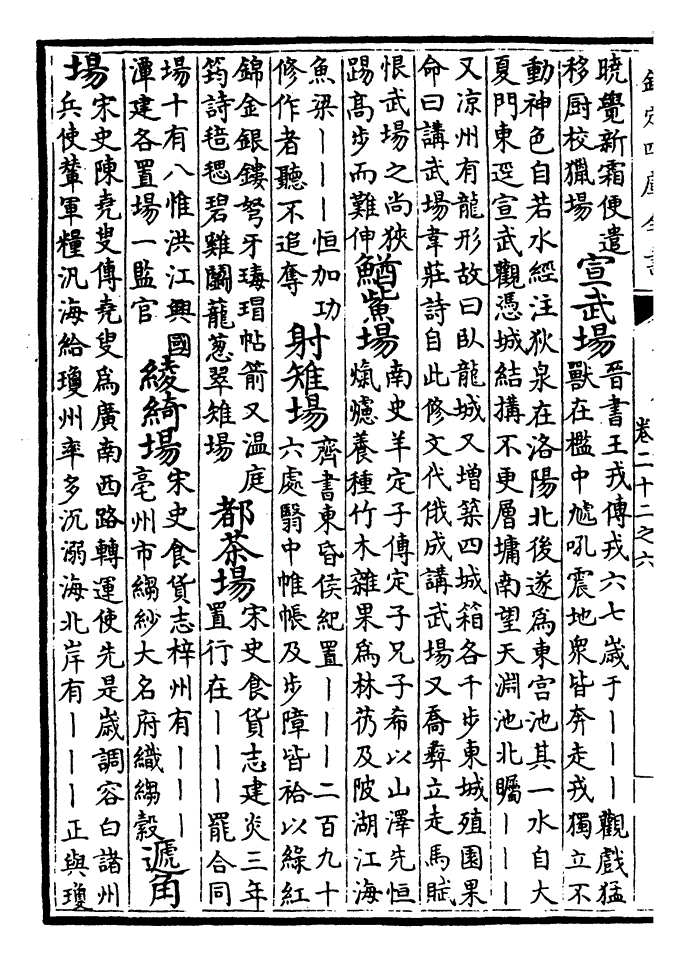 欽定四庫全書
卷二十二之六
曉覺新霜便遣
移厨校獵場
宣武場
晉書王戎傳戎六七歲于｜｜｜觀戲猛
獸在檻中虓吼震地衆皆奔走戎獨立不
動神色自若水經注狄泉在洛陽北後遂爲東宫池其一水自大
夏門東逕宣武觀憑城結搆不更層墉南望天淵池北矚｜｜｜
又凉州有龍形故曰卧龍城又增築四城箱各千步東城殖園果
命曰講武場韋莊詩自此修文代俄成講武場又喬彝立走馬賦
恨武場之尚狹
踢高步而難伸
鰌鮆場
南史羊定子傳定子兄子希以山澤先恒
熂爈養種竹木雜果爲林芿及陂湖江海
魚梁｜｜｜恒加功
修作者聽不追奪
射雉場
齊書東昏侯紀置｜｜｜二百九十
六處翳中帷帳及步障皆袷以綠紅
錦金銀鏤弩牙瑇瑁帖箭又温庭
筠詩毰毸碧雞鬭蘢葱翠雉場
都茶場
宋史食貨志建炎三年
置行在｜｜｜罷合同
場十有八惟洪江興國
潭建各置場一監官
綾綺場
宋史食貨志梓州有｜｜｜
亳州市縐紗大名府織縐縠
遞角
場
宋史陳堯叟傳堯叟爲廣南西路轉運使先是歲調容白諸州
兵使輦軍糧汎海給瓊州率多沉溺海北岸有｜｜｜正與瓊